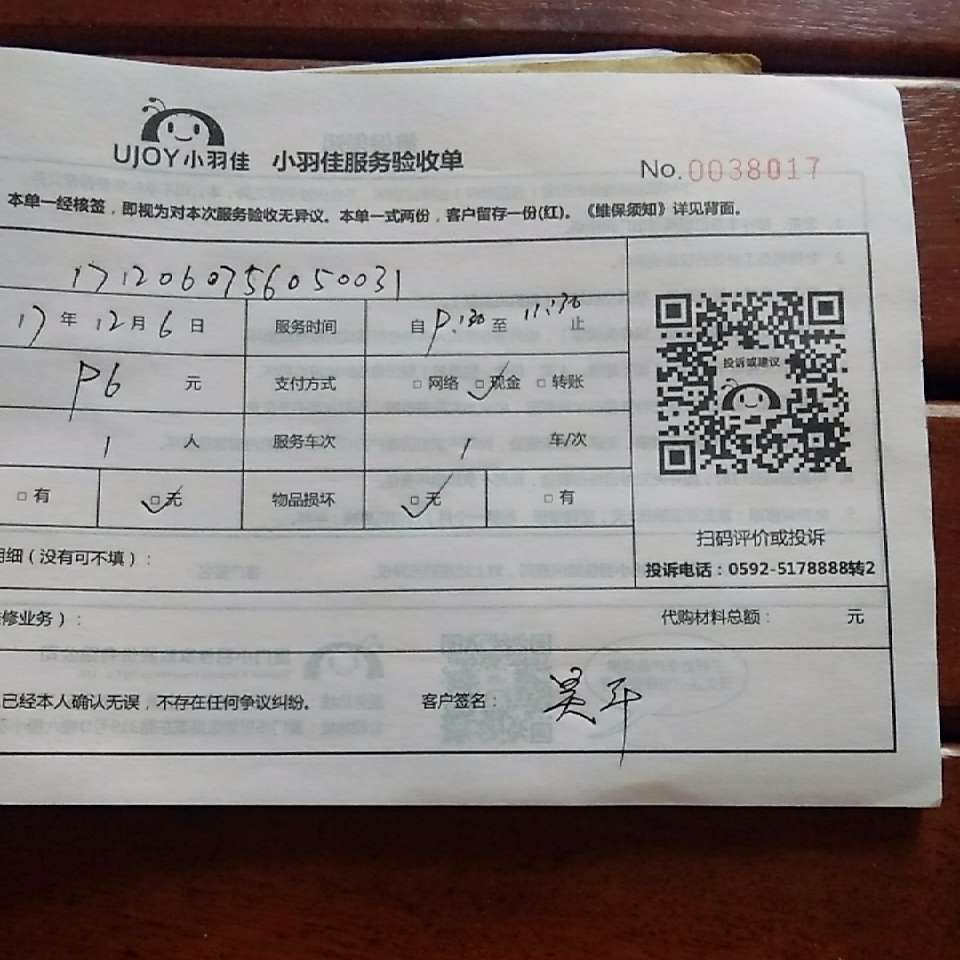 UJOY小羽佳 小羽佳服务验收单
No.0038017
本单一经核签，即视为对本次服务验收无异议。本单一式两份，客户留存一份(红)。《维保须知》详见背面。
1712060756050031
17年12月6日 服务时间 自9:30至11:30止
96元 支付方式 □网络 □✓现金 □转账
1人 服务车次 1车/次
□有 □✓无 物品损坏 □✓无 □有
投诉或建议
扫码评价或投诉
投诉电话：0592-5178888转2
明细（没有可不填）：
修业务）： 代购材料总额： 元
已经本人确认无误，不存在任何争议纠纷。 客户签名：